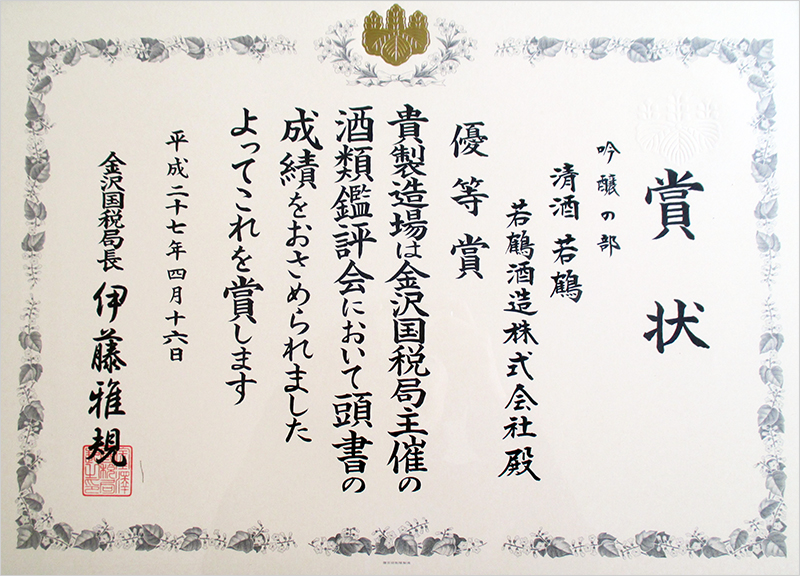 賞状
吟醸の部
清酒 若鶴
若鶴酒造株式会社 殿
優等賞
貴製造場は金沢国税局主催の
酒類鑑評会において頭書の
成績をおさめられました
よってこれを賞します
平成二十七年四月十六日
金沢国税局長 伊藤雅規